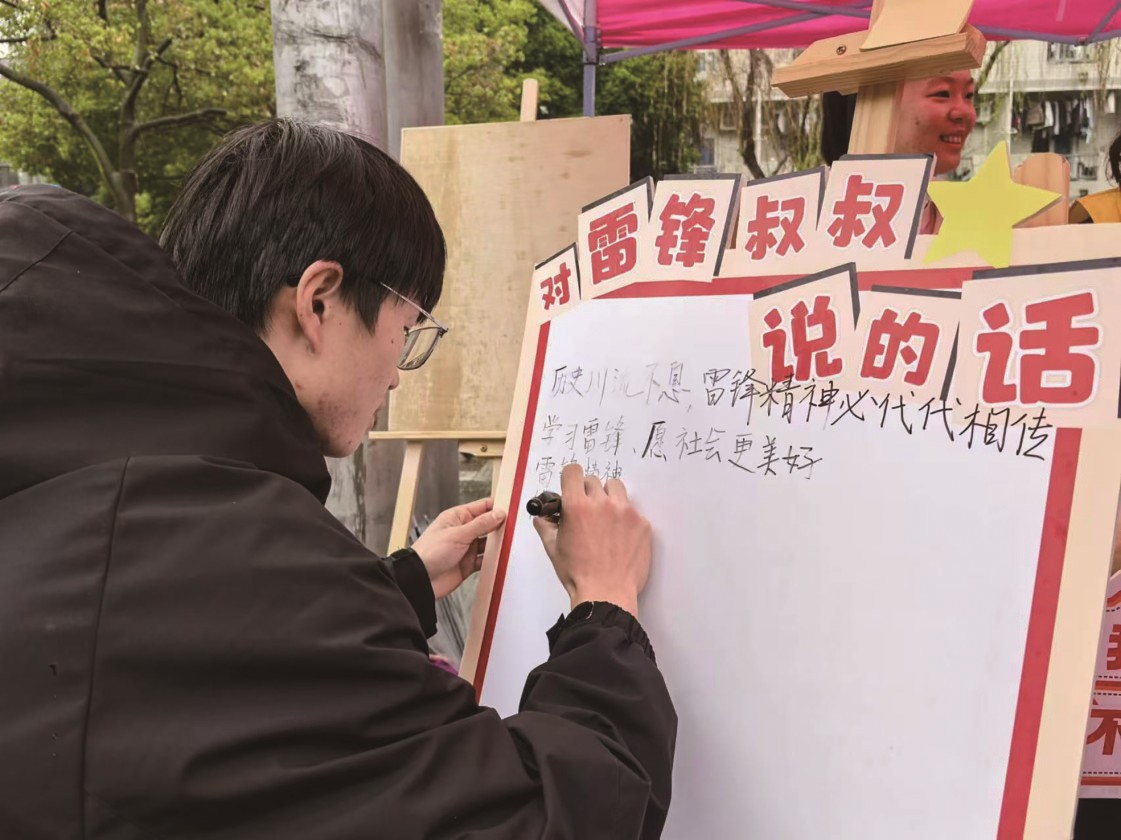 对雷锋叔叔
说的话
历史川流不息，雷锋精神必代代相传
学习雷锋、愿社会更美好
雷锋精神